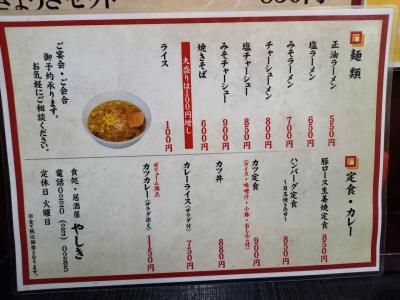 麺類
正油ラーメン 550円
塩ラーメン 650円
みそラーメン 700円
チャーシューメン 800円
塩チャーシュー 850円
みそチャーシュー 900円
焼きそば 600円
大盛りは100円増し
ライス 100円
ご宴会・ご会合
御予約承ります。
お気軽にご相談ください。
定食・カレー
豚ロース生姜焼定食 850円
ハンバーグ定食 850円
〜目玉焼きのせ〜
カツ定食 900円
(ライス・味噌汁・小鉢・おしんこ付)
カツ丼 880円
カレーライス(サラダ付) 750円
ボリューム満点
カツカレー(サラダ添え) 1150円
食処・居酒屋 やしき
電話 0220(23)0285
定休日 火曜日